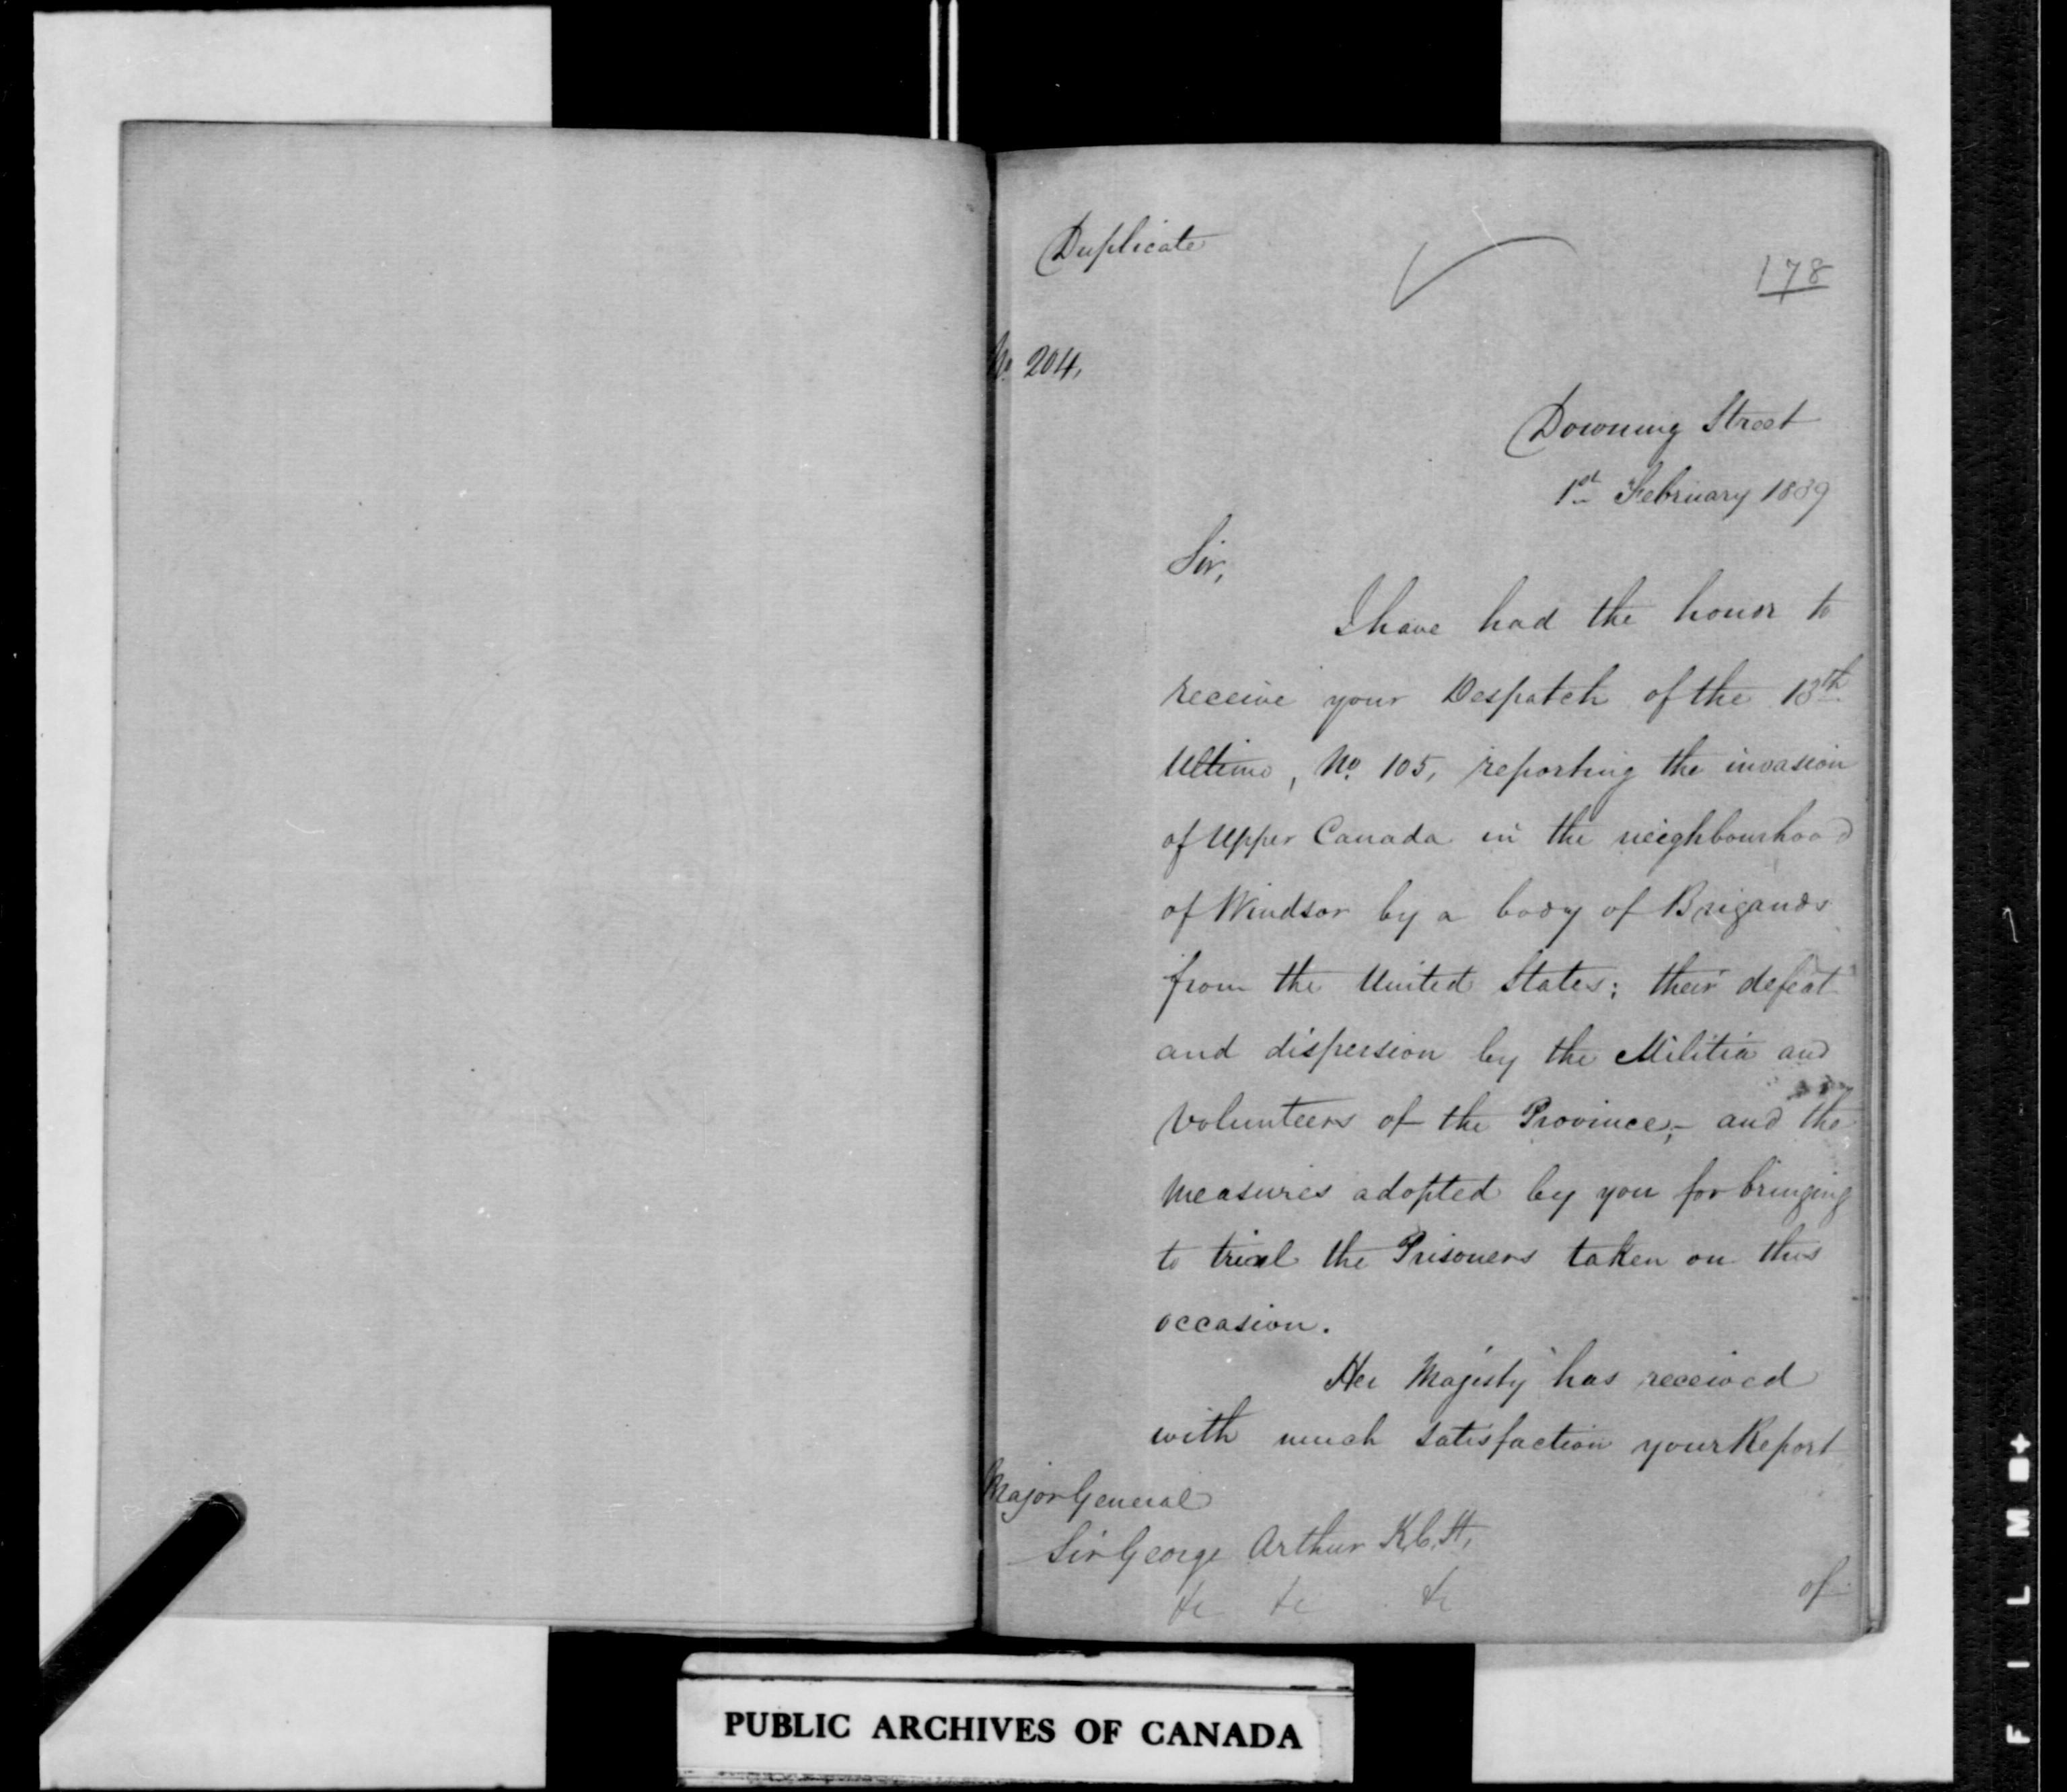 Duplicate
178
No. 204.
Downing Street
1st February 1839
Sir,
I have had the honor to
receive your Despatch of the 13th
Ultimo, No. 105, reporting the invasion
of Upper Canada in the neighbourhood
of Windsor by a body of Brigands
from the United States; their defeat
and dispersion by the Militia and
Volunteers of the Province;- and the
measures adopted by you for bringing
to trial the Prisoners taken on this
occasion.
Her Majesty has received
with much satisfaction your Report
Major General
Sir George Arthur K.C.H.
&c &c &c
of
PUBLIC ARCHIVES OF CANADA
FILM